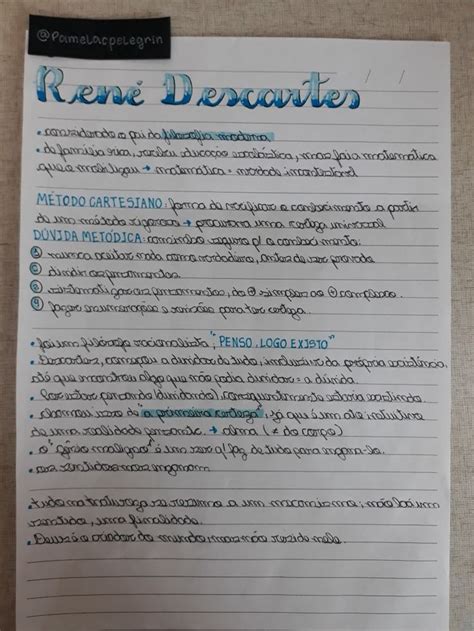 @pamelacpelegrin
René Descartes
/ /
• considerado o pai da filosofia moderna
• de família rica, recebeu educação escolástica, mas foi a matemática
que o maravilhou → matemática = verdade incontestável
MÉTODO CARTESIANO: forma de verificar o conhecimento a partir
de um método rigoroso → procurava uma certeza universal
DÚVIDA METÓDICA: caminho seguro p/ o conhecimento:
① nunca aceitar nada como verdadeiro, antes de ser provado
② dividir os pensamentos.
③ os pensamentos, do + simples ao + complexo.
④ fazer enumerações e revisões para ter certeza.
• foi um filósofo racionalista, "PENSO, LOGO EXISTO"
• Descartes, começou a duvidar de tudo, inclusive da própria existência
até que encontrou algo que não podia duvidar: a dúvida.
• por estar pensando (duvidando), consequentemente estaria existindo.
• chamou isso de "a primeira certeza", já que é um ato intuitivo
de uma realidade pensante. → alma (≠ do corpo)
• o "gênio maligno" é um ser q/ faz de tudo para enganá-lo.
• os sentidos nos enganam
• tudo na natureza se resume a um mecanismo; não há um
sentido, uma finalidade.
• Deus é o criador do mundo, mas não reside nele.